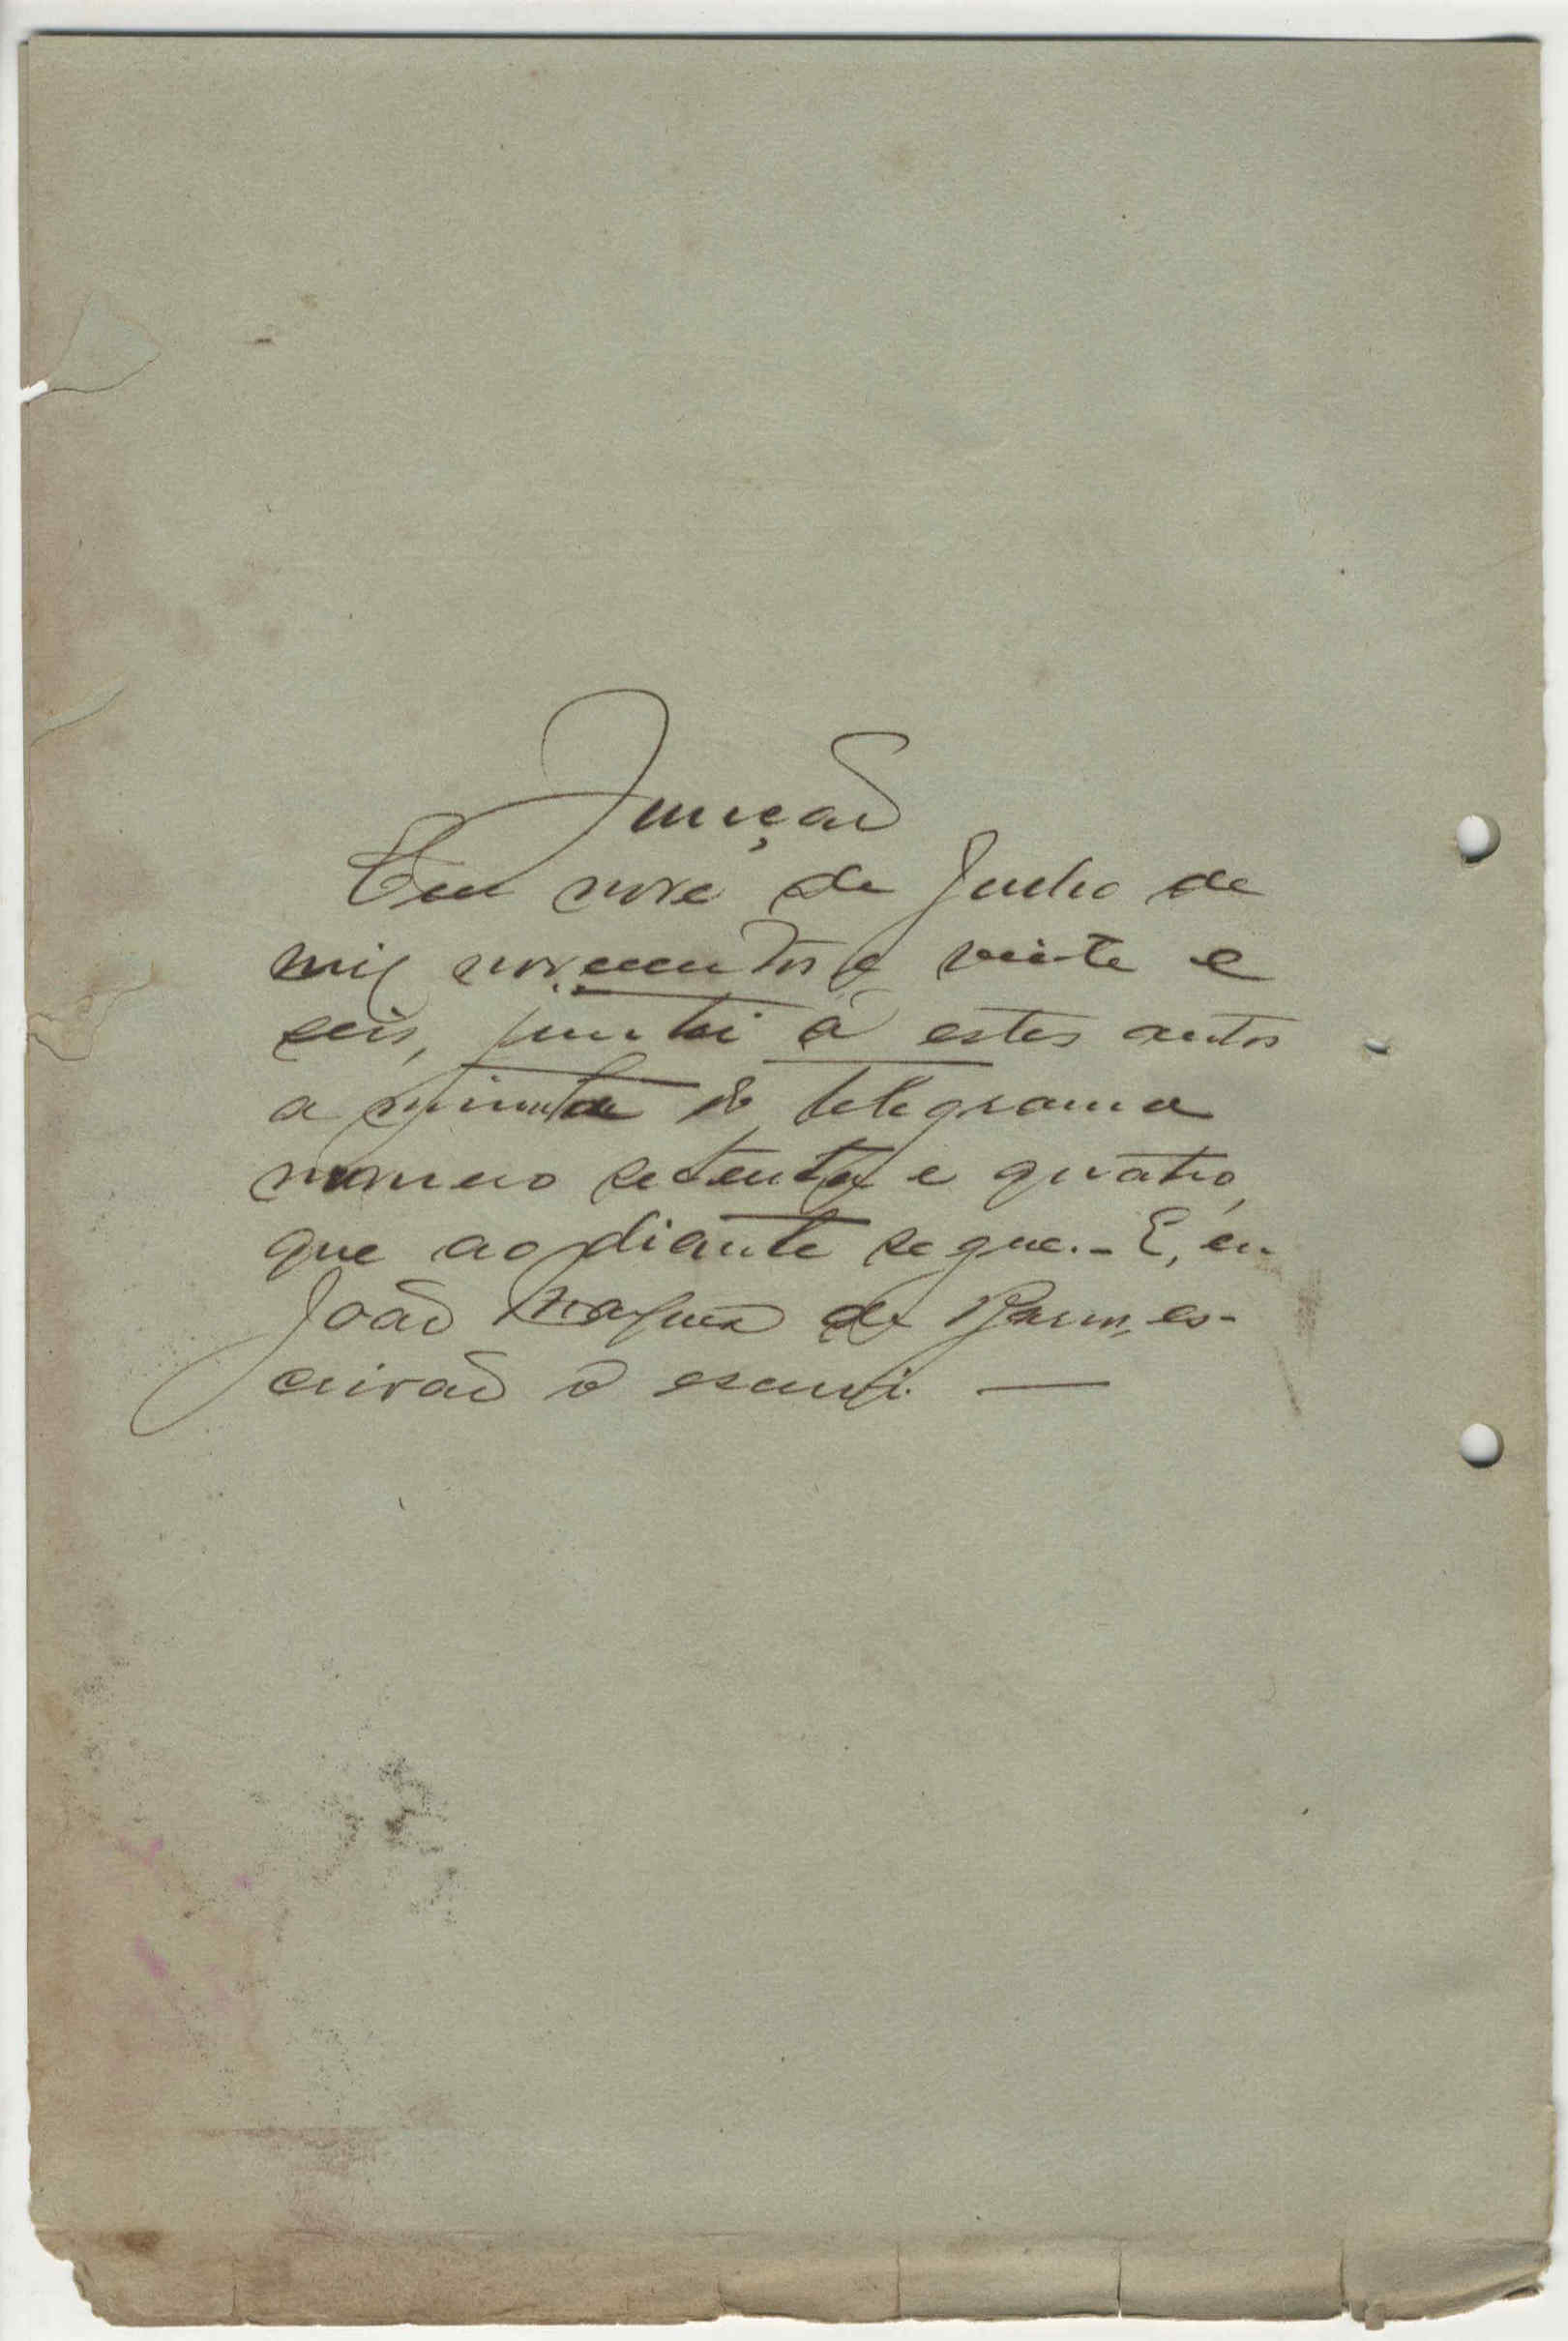 Junção
Em nove de Junho de
mil novecentos e vinte e
seis, juntei á estes autos
a minuta do telegrama
numero setenta e quatro,
que ao diante segue. - E, eu
João de Barros, es-
crivão o escrevi. —